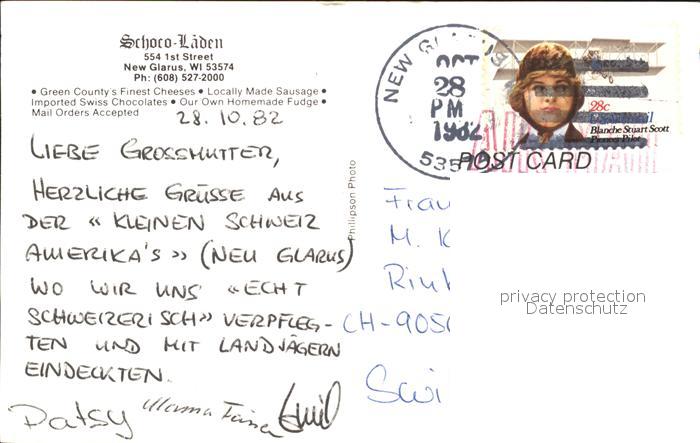 Schoco-Läden
554 1st Street
New Glarus, WI 53574
Ph: (608) 527-2000
• Green County's Finest Cheeses • Locally Made Sausage •
Imported Swiss Chocolates • Our Own Homemade Fudge •
Mail Orders Accepted
28.10.82
LIEBE GROSSMUTTER,
HERZLICHE GRÜSSE AUS
DER « KLEINEN SCHWEIZ
AMERIKA'S » (NEU GLARUS)
WO WIR UNS «ECHT
SCHWEIZERISCH» VERPFLEG-
TEN UND MIT LANDJÄGERN
EINDECKTEN.
Patsy Mama Emil
Phillipson Photo
NEW GLARUS
OCT
28
PM
1982
535
28c
Blanche Stuart Scott
Pioneer Pilot
POST CARD
Frau
M. K
CH-905
privacy protection
Datenschutz